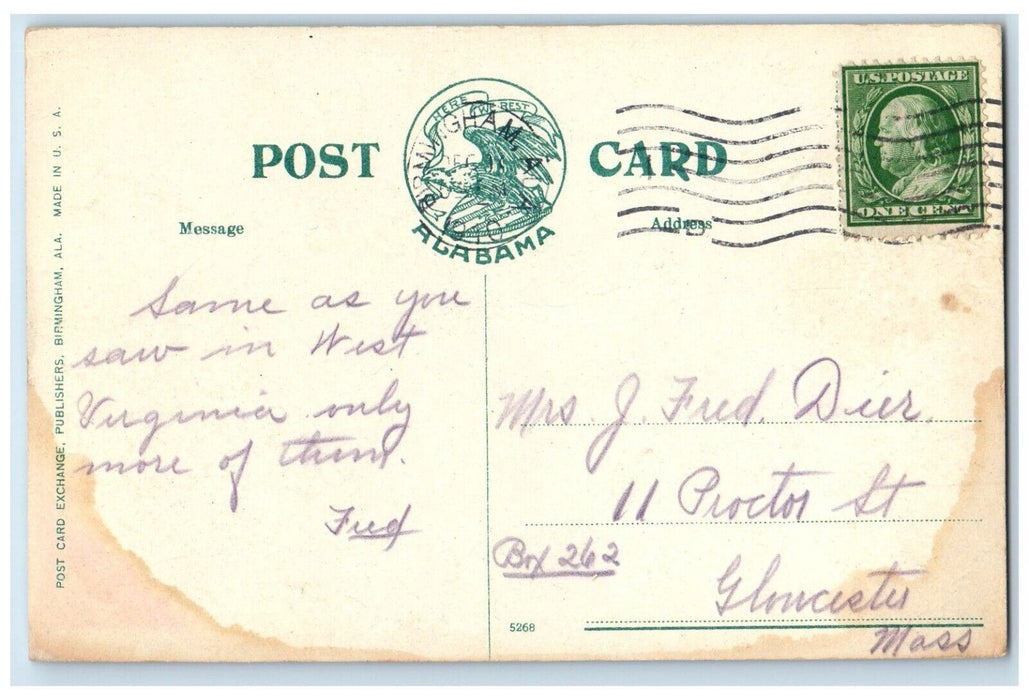 POST CARD
HERE WE REST
ALABAMA
BIRMINGHAM, ALA
DEC
U.S. POSTAGE
ONE CENT
Message
Address
Same as you
saw in West
Virginia only
more of them.
Fred
Mrs J. Fred. Dier.
11 Proctor St
Box 262
Gloucester
Mass
5268
POST CARD EXCHANGE, PUBLISHERS, BIRMINGHAM, ALA. MADE IN U. S. A.